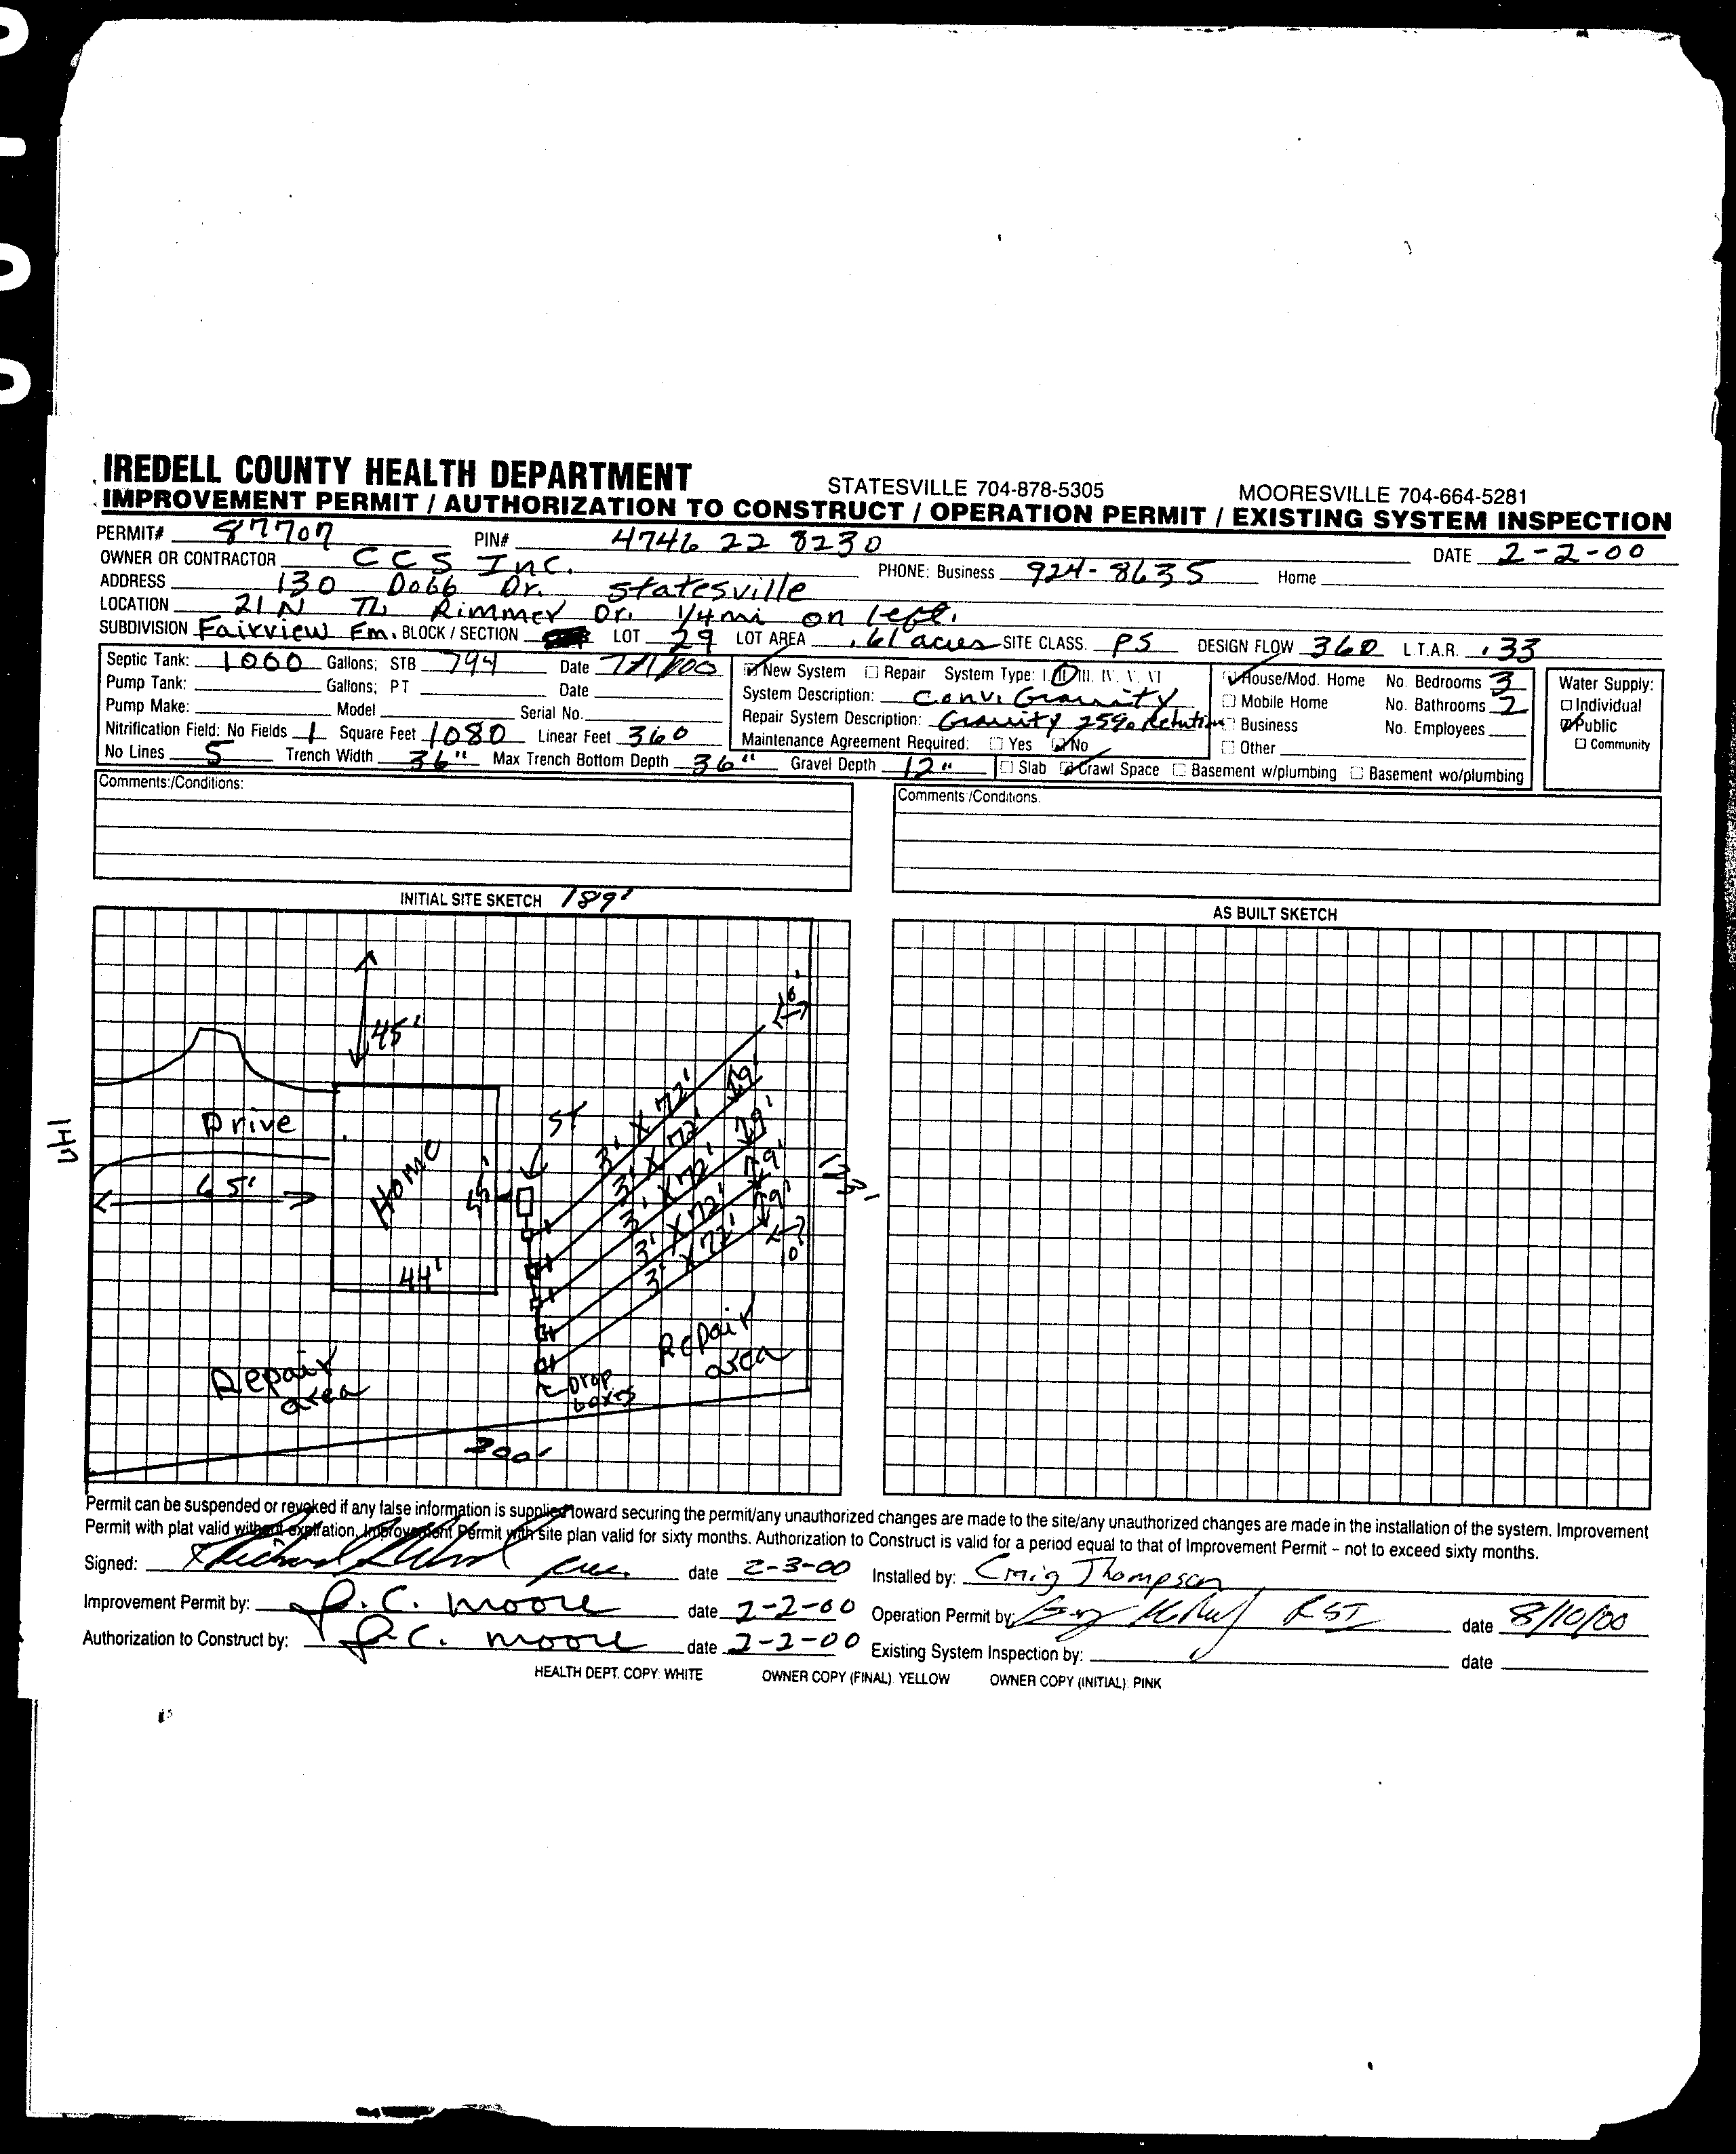 IREDELL COUNTY HEALTH DEPARTMENT STATESVILLE 704-878-5305 MOORESVILLE 704-664-5281
IMPROVEMENT PERMIT / AUTHORIZATION TO CONSTRUCT / OPERATION PERMIT / EXISTING SYSTEM INSPECTION
PERMIT# 87707 PIN# 4746 22 8230 DATE 2-2-00
OWNER OR CONTRACTOR CCS Inc. PHONE: Business 924-8635 Home
ADDRESS 130 Dobb Dr. Statesville
LOCATION 21 N TL Rimmer Dr. 1/4 mi on left.
SUBDIVISION Fairview Em. BLOCK / SECTION LOT 29 LOT AREA .61 acres SITE CLASS. PS DESIGN FLOW 360 L.T.A.R. .33
Septic Tank: 1000 Gallons; STB 794 Date 7/1/00
Pump Tank: Gallons; PT Date
Pump Make: Model Serial No.
Nitrification Field: No Fields 1 Square Feet 1080 Linear Feet 360
No Lines 5 Trench Width 36" Max Trench Bottom Depth 36" Gravel Depth 12"
New System Repair System Type: I. II. III. IV. V. VI
System Description: Conv. Gravity
Repair System Description: Gravity 25% Reduction
Maintenance Agreement Required: Yes No
Slab Crawl Space Basement w/plumbing Basement wo/plumbing
House/Mod. Home No. Bedrooms 3
Mobile Home No. Bathrooms 2
Business No. Employees
Other
Water Supply:
Individual
Public
Community
Comments:/Conditions:
Comments:/Conditions.
INITIAL SITE SKETCH 189'
AS BUILT SKETCH
45'
10'
Drive
Home
45'
44'
65'
141
ST
3' X 72'
3' X 72'
3' X 72'
3' X 72'
3' X 72'
9'
9'
9'
9'
10'
133'
Repair area
Repair area
Drop boxes
200'
Permit can be suspended or revoked if any false information is supplied toward securing the permit/any unauthorized changes are made to the site/any unauthorized changes are made in the installation of the system. Improvement
Permit with plat valid without expiration, Improvement Permit with site plan valid for sixty months. Authorization to Construct is valid for a period equal to that of Improvement Permit – not to exceed sixty months.
Signed: date 2-3-00 Installed by: Craig Thompson
Improvement Permit by: J.C. Moore date 2-2-00 Operation Permit by: RSI date 8/10/00
Authorization to Construct by: J.C. Moore date 2-2-00 Existing System Inspection by: date
HEALTH DEPT. COPY: WHITE OWNER COPY (FINAL) YELLOW OWNER COPY (INITIAL): PINK